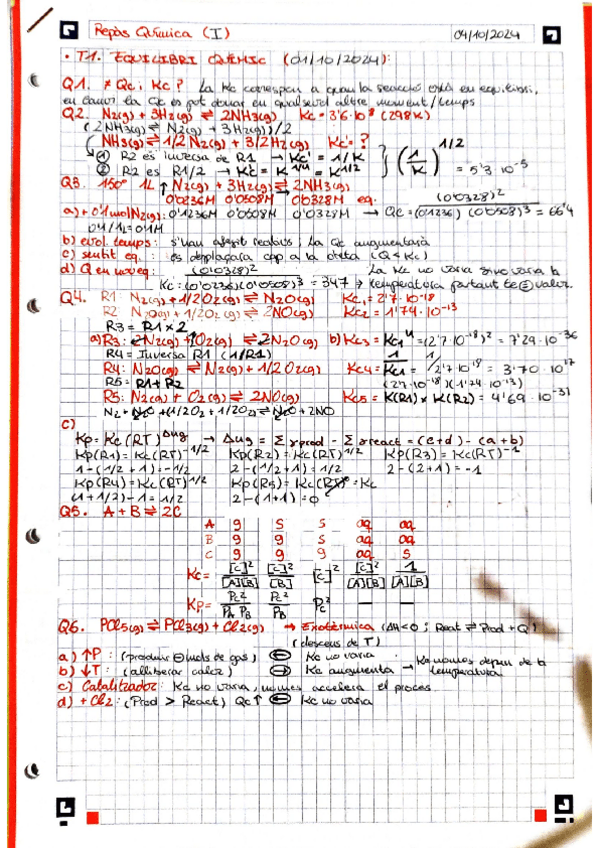 Repàs Química (I) 04/10/2024
· T.1. EQUILIBRI QUÍMIC (01/10/2024):
Q1. ≠ Qc, Kc? La Kc correspon a quan la reacció està en equilibri,
en canvi la Qc es pot donar en qualsevol altre moment/temps
Q2. N2(g) + 3H2(g) ⇌ 2NH3(g) Kc = 3'6·10⁸ (298K)
(2NH3(g) ⇌ N2(g) + 3H2(g))/2
NH3(g) ⇌ 1/2 N2(g) + 3/2 H2(g) Kc' = ?
① R2 es inversa de R1 → Kc' = 1/K
② R2 es R1/2 → Kc = K^1/2 } (1/K)^1/2 = 5'3·10⁻⁵
Q3. 150° 1L N2(g) + 3H2(g) ⇌ 2NH3(g)
0'0236M 0'0508M 0'0328M eq.
a) + 0'1mol N2(g): 0'1236M 0'0508M 0'0328M → Qc = (0'0328)² / (0'1236)(0'0508)³ = 66'4
0'1/1L = 0'1M
b) evol. temps: s'han afegit reactius; la Qc augmentarà
c) sentit eq.: es desplaçarà cap a la dreta (Q < Kc)
d) Q en nou eq: Kc = (0'0328)² / (0'0236)(0'0508)³ = 347 → La Kc no varia si no varia la
temperatura per tant te = valor.
Q4. R1: N2(g) + 1/2O2(g) ⇌ N2O(g) Kc1 = 2'7·10⁻¹⁸
R2: N2O(g) + 1/2O2(g) ⇌ 2NO(g) Kc2 = 1'74·10⁻¹³
R3 = R1 x 2
a) R3: 2N2(g) + O2(g) ⇌ 2N2O(g) b) Kc3 = Kc1⁴ = (2'7·10⁻¹⁸)² = 7'29·10⁻³⁶
R4 = Inversa R1 (1/R1)
R4: N2O(g) ⇌ N2(g) + 1/2O2(g) Kc4 = 1/Kc1 = 1/2'7·10⁻¹⁸ = 3'70·10¹⁷
R5 = R1 + R2 (2'7·10⁻¹⁸)(1'74·10⁻¹³)
R5: N2(g) + O2(g) ⇌ 2NO(g) Kc5 = K(R1) x K(R2) = 4'69·10⁻³¹
N2 + N2O + (1/2O2 + 1/2O2) ⇌ N2O + 2NO
c)
Kp = Kc(RT)^Δng → Δng = Σ γprod - Σ γreact = (c+d) - (a+b)
Kp(R1) = Kc(RT)^-1/2 Kp(R2) = Kc(RT)^1/2 Kp(R3) = Kc(RT)^-1
1-(1/2+1) = -1/2 2-(1/2+1) = 1/2 2-(2+1) = -1
Kp(R4) = Kc(RT)^1/2 Kp(R5) = Kc(RT)^0 = Kc
(1+1/2)-1 = 1/2 2-(1+1) = 0
Q5. A + B ⇌ 2C
A g s s aq aq
B g g s aq aq
C g g g aq s
Kc = [C]²/[A][B] [C]²/[B] [C]² [C]²/[A][B] 1/[A][B]
Kp = Pc²/PA PB Pc²/PB Pc² — —
Q6. PCl5(g) ⇌ PCl3(g) + Cl2(g) → Exotèrmica (ΔH<0; React ⇌ Prod + Q)
(descens de T)
a) ↑P: (produir ⊖ mols de gas) ← Kc no varia
b) ↓T: (alliberar calor) → Kc augmenta → Kc només depen de la
temperatura
c) Catalitzador: Kc no varia, només accelera el procés
d) + Cl2: (Prod > React) Qc↑ ← Kc no varia